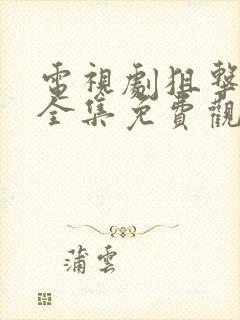 電視劇狙擊
全集免費觀
蒲雲